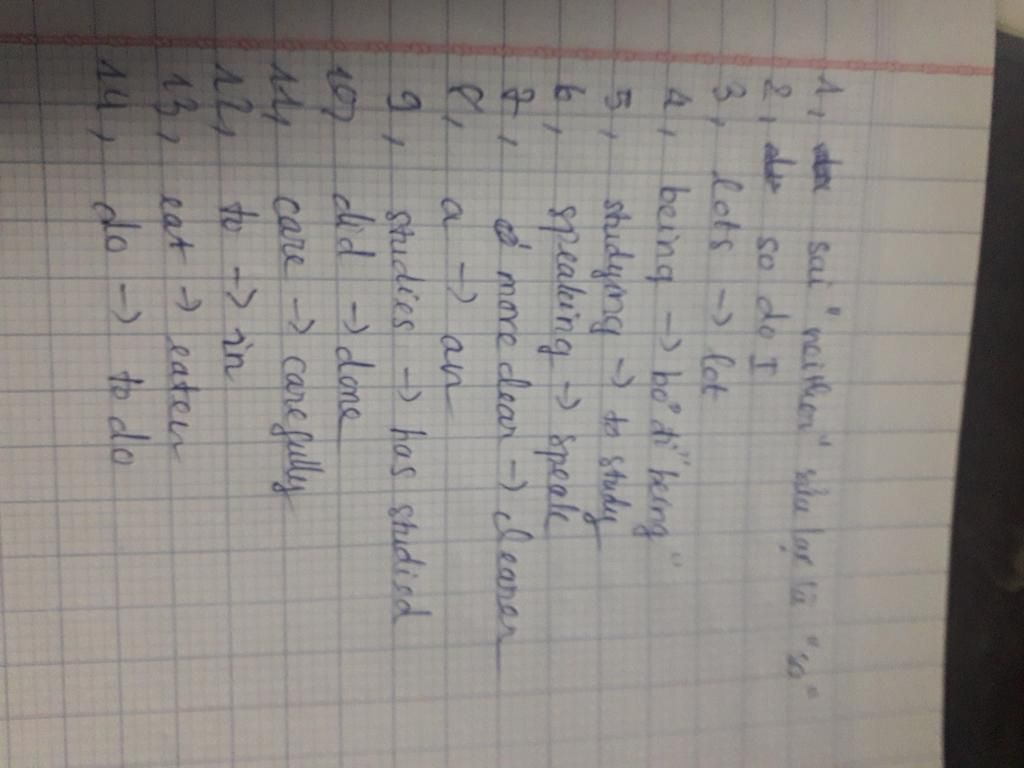 1, sai "neither" sửa lại là "so"
2, so do I
3, lots -> lot
4, being -> bỏ đi "being"
5, studying -> to study
6, speaking -> speak
7, more clear -> clearer
8, a -> an
9, studies -> has studied
10, did -> done
11, care -> carefully
12, to -> in
13, eat -> eaten
14, do -> to do